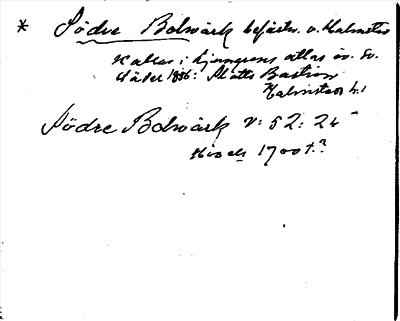 * Södre Bolwärk befästn. v. Halmstad
Kallas i Ljunggrens atlas öv. Sv.
städer 1856: Slotts Bastion
Halmstad h.
Södre Bolwärk V: 52: 24
1700 t.?